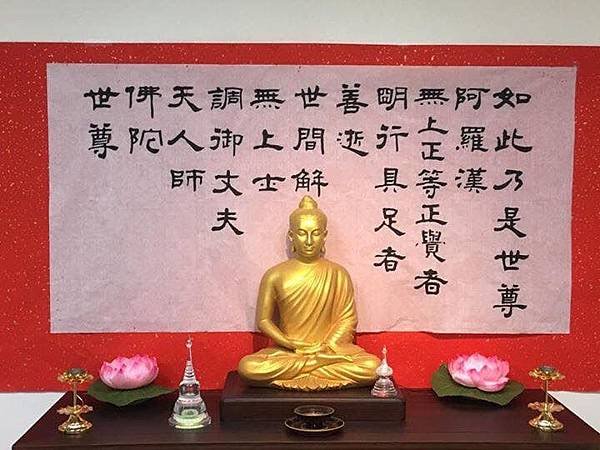 如此乃是世尊
阿羅漢
無上正等正覺者
明行具足者
善逝
世間解
無上士
調御丈夫
天人師
佛陀
世尊